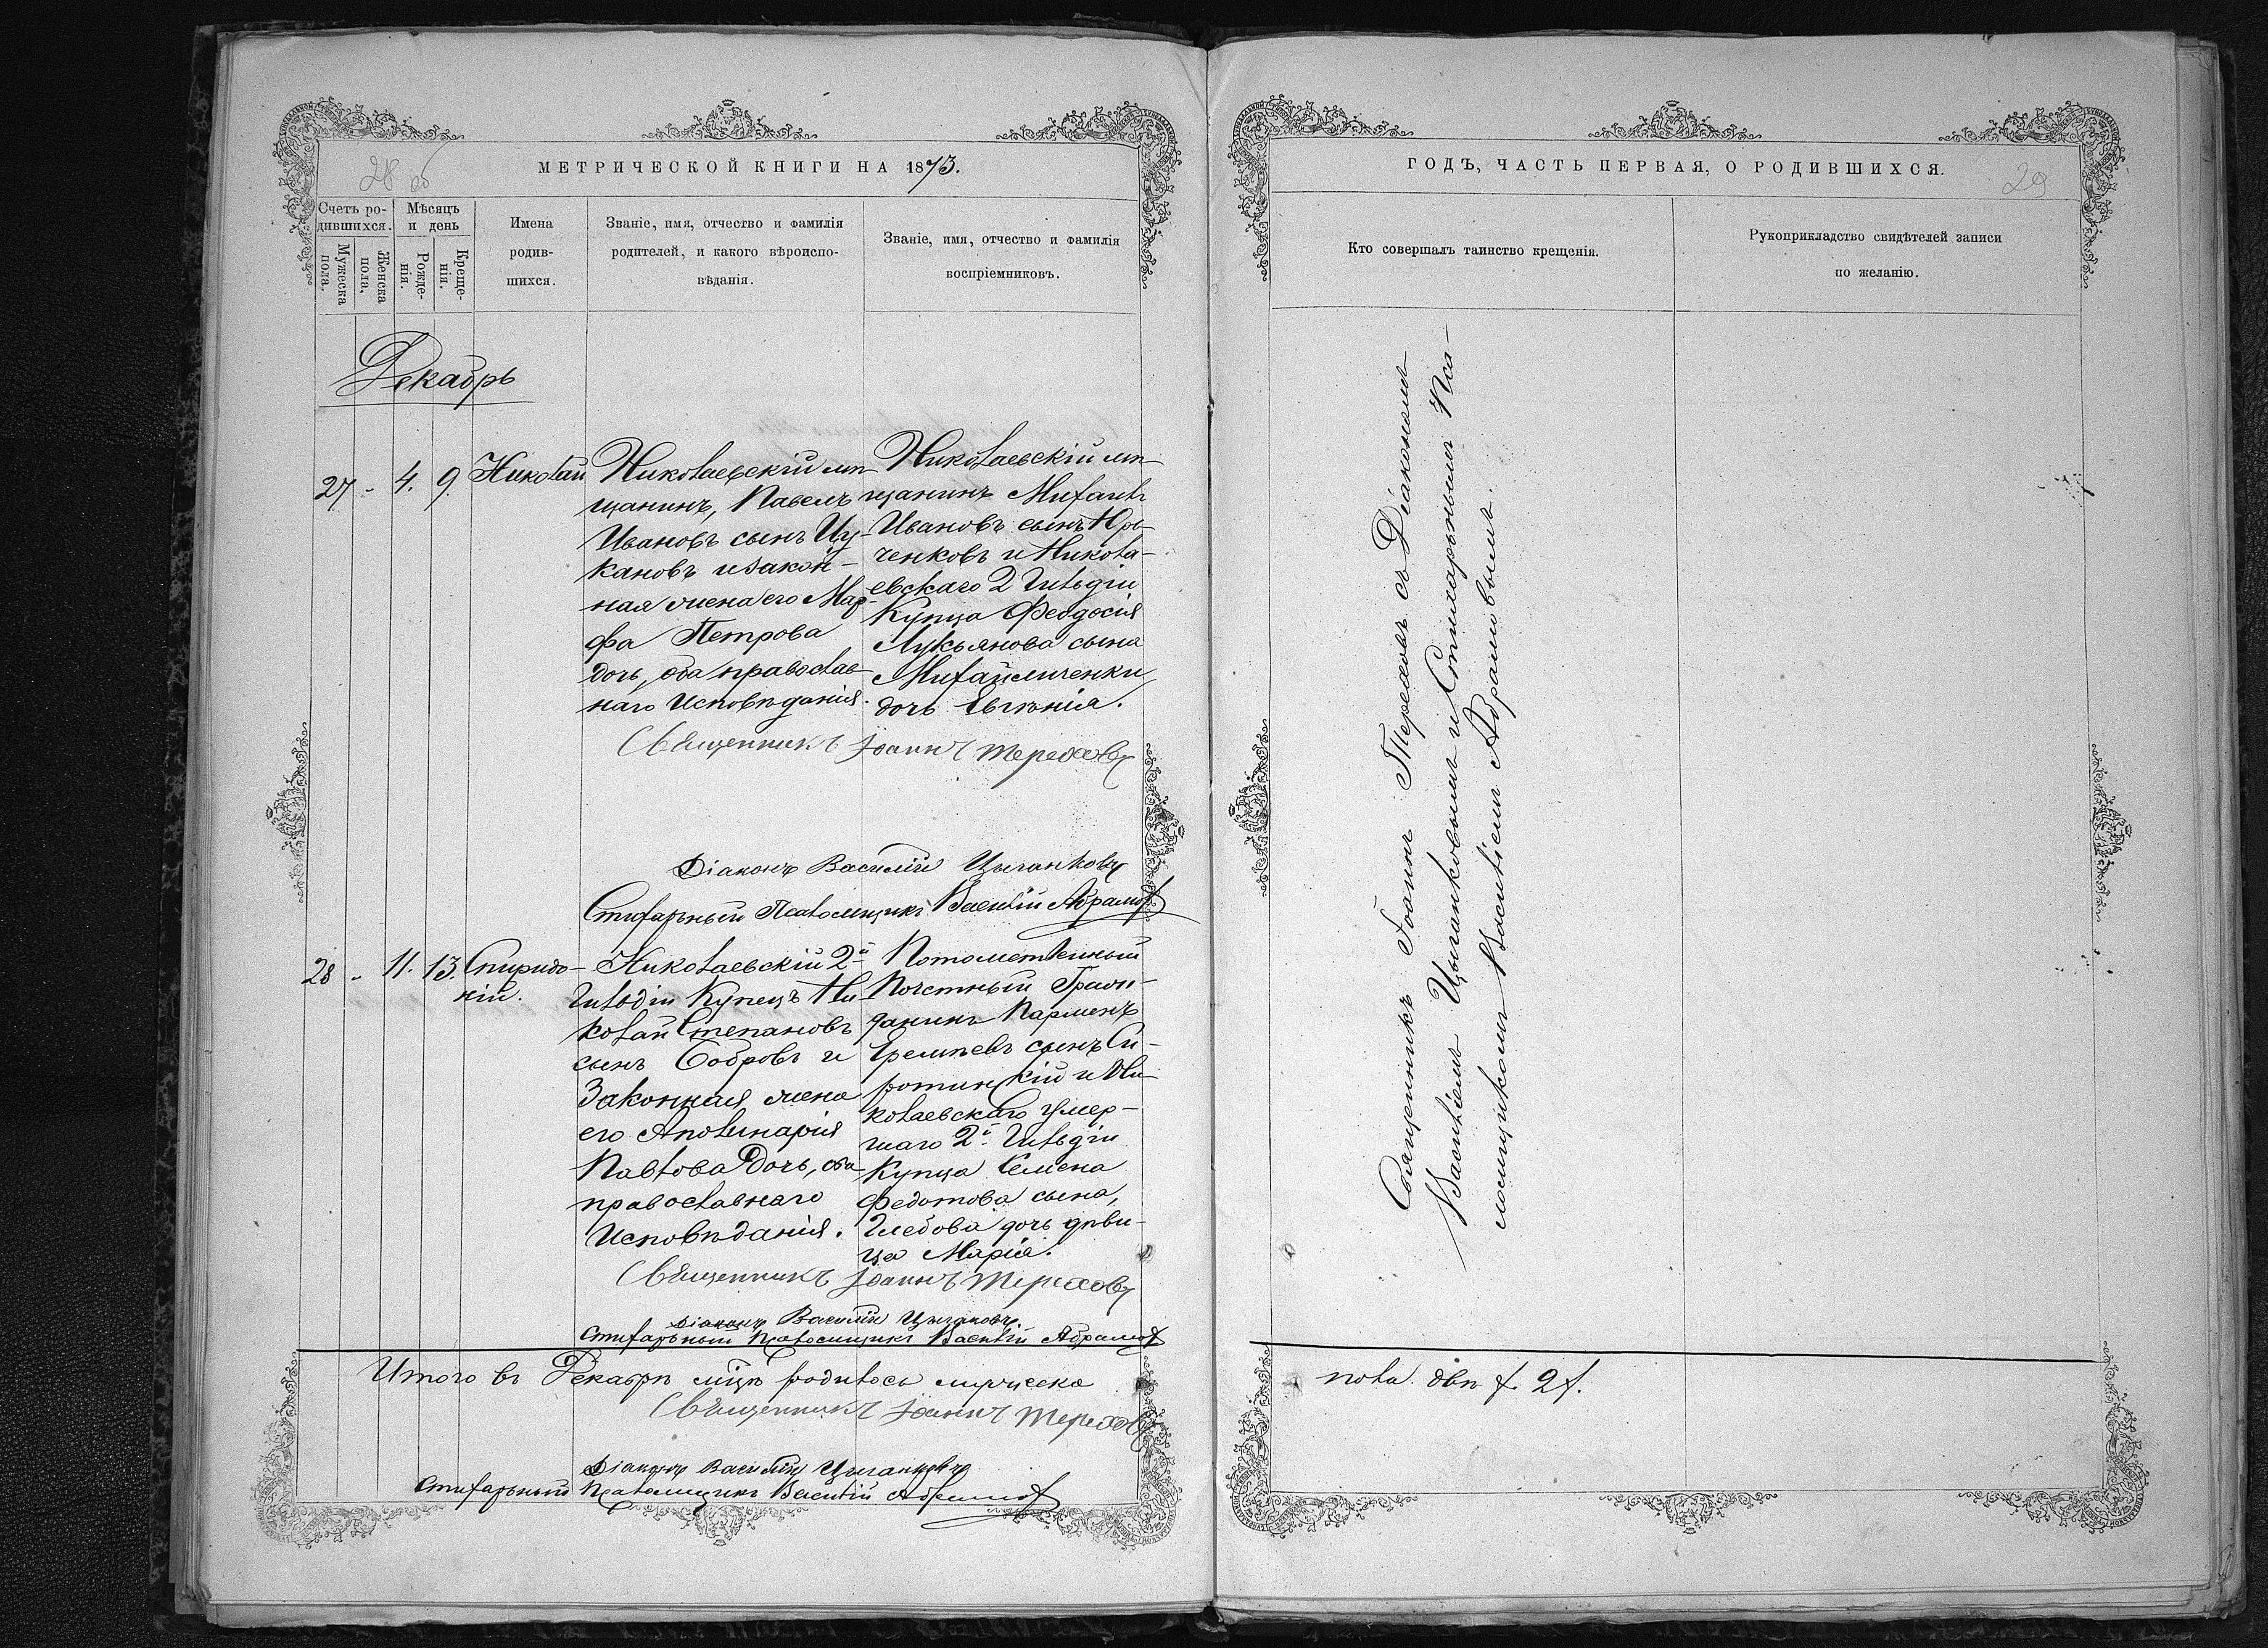 28 об
МЕТРИЧЕСКОЙ КНИГИ НА 1873.
Счетъ ро-
дившихся.
Мѣсяцъ
и день
Мужеска
пола.
Женска
пола.
Рожде-
нія.
Креще-
нія.
Имена
родив-
шихся.
Званіе, имя, отчество и фамилія
родителей, и какого вѣроиспо-
вѣданія.
Званіе, имя, отчество и фамилія
воспріемниковъ.
Декабрь
27 - 4. 9. Николай
Николаевскій мѣ-
щанинъ, Павелъ
Ивановъ сынъ Цу-
кановъ и закон-
ная жена его Мар-
фа Петрова
дочь, оба православ-
наго Исповѣданія.
Николаевскій мѣ-
щанинъ Михаилъ
Ивановъ сынъ Юр-
ченковъ и Никола-
евскаго 2 Гильдіи
Купца Феодосія
Лукьянова сына
Михайличенки
дочь Евгенія.
Священникъ Іоаннъ Тереховъ
Діаконъ Василій Цыганковъ
Стихарный Псаломщикъ Василій Абрамов
28 - 11. 13. Спиридо-
ній.
Николаевскій 2й
Гильдіи Купецъ Ни-
колай Степановъ
сынъ Бобровъ и
Законная жена
его Аполинарія
Павлова дочь, оба
православнаго
Исповѣданія.
Потомственный
Почетный Граж-
данинъ Парменъ
Еремѣевъ сынъ Си-
ротинскій и Ни-
колаевскаго умер-
шаго 2й Гильдіи
Купца Семена
Федотова сына,
Глебова дочь дѣви-
ца Марія.
Священникъ Іоаннъ Тереховъ
Діаконъ Василій Цыганковъ
Стихарный Псаломщикъ Василій Абрамов
Итого въ Декабрѣ мцѣ родилось мужеска
Священникъ Іоаннъ Тереховъ
Діаконъ Василій Цыганковъ
Стихарный Псаломщикъ Василій Абрамов
29
ГОДЪ, ЧАСТЬ ПЕРВАЯ, О РОДИВШИХСЯ.
Кто совершалъ таинство крещенія.
Рукоприкладство свидѣтелей записи
по желанію.
Священникъ Іоаннъ Тереховъ съ Діакономъ
Василіемъ Цыганковымъ и Стихарнымъ Пса-
ломщикомъ Василіемъ Абрамовымъ.
пола двѣ 2.